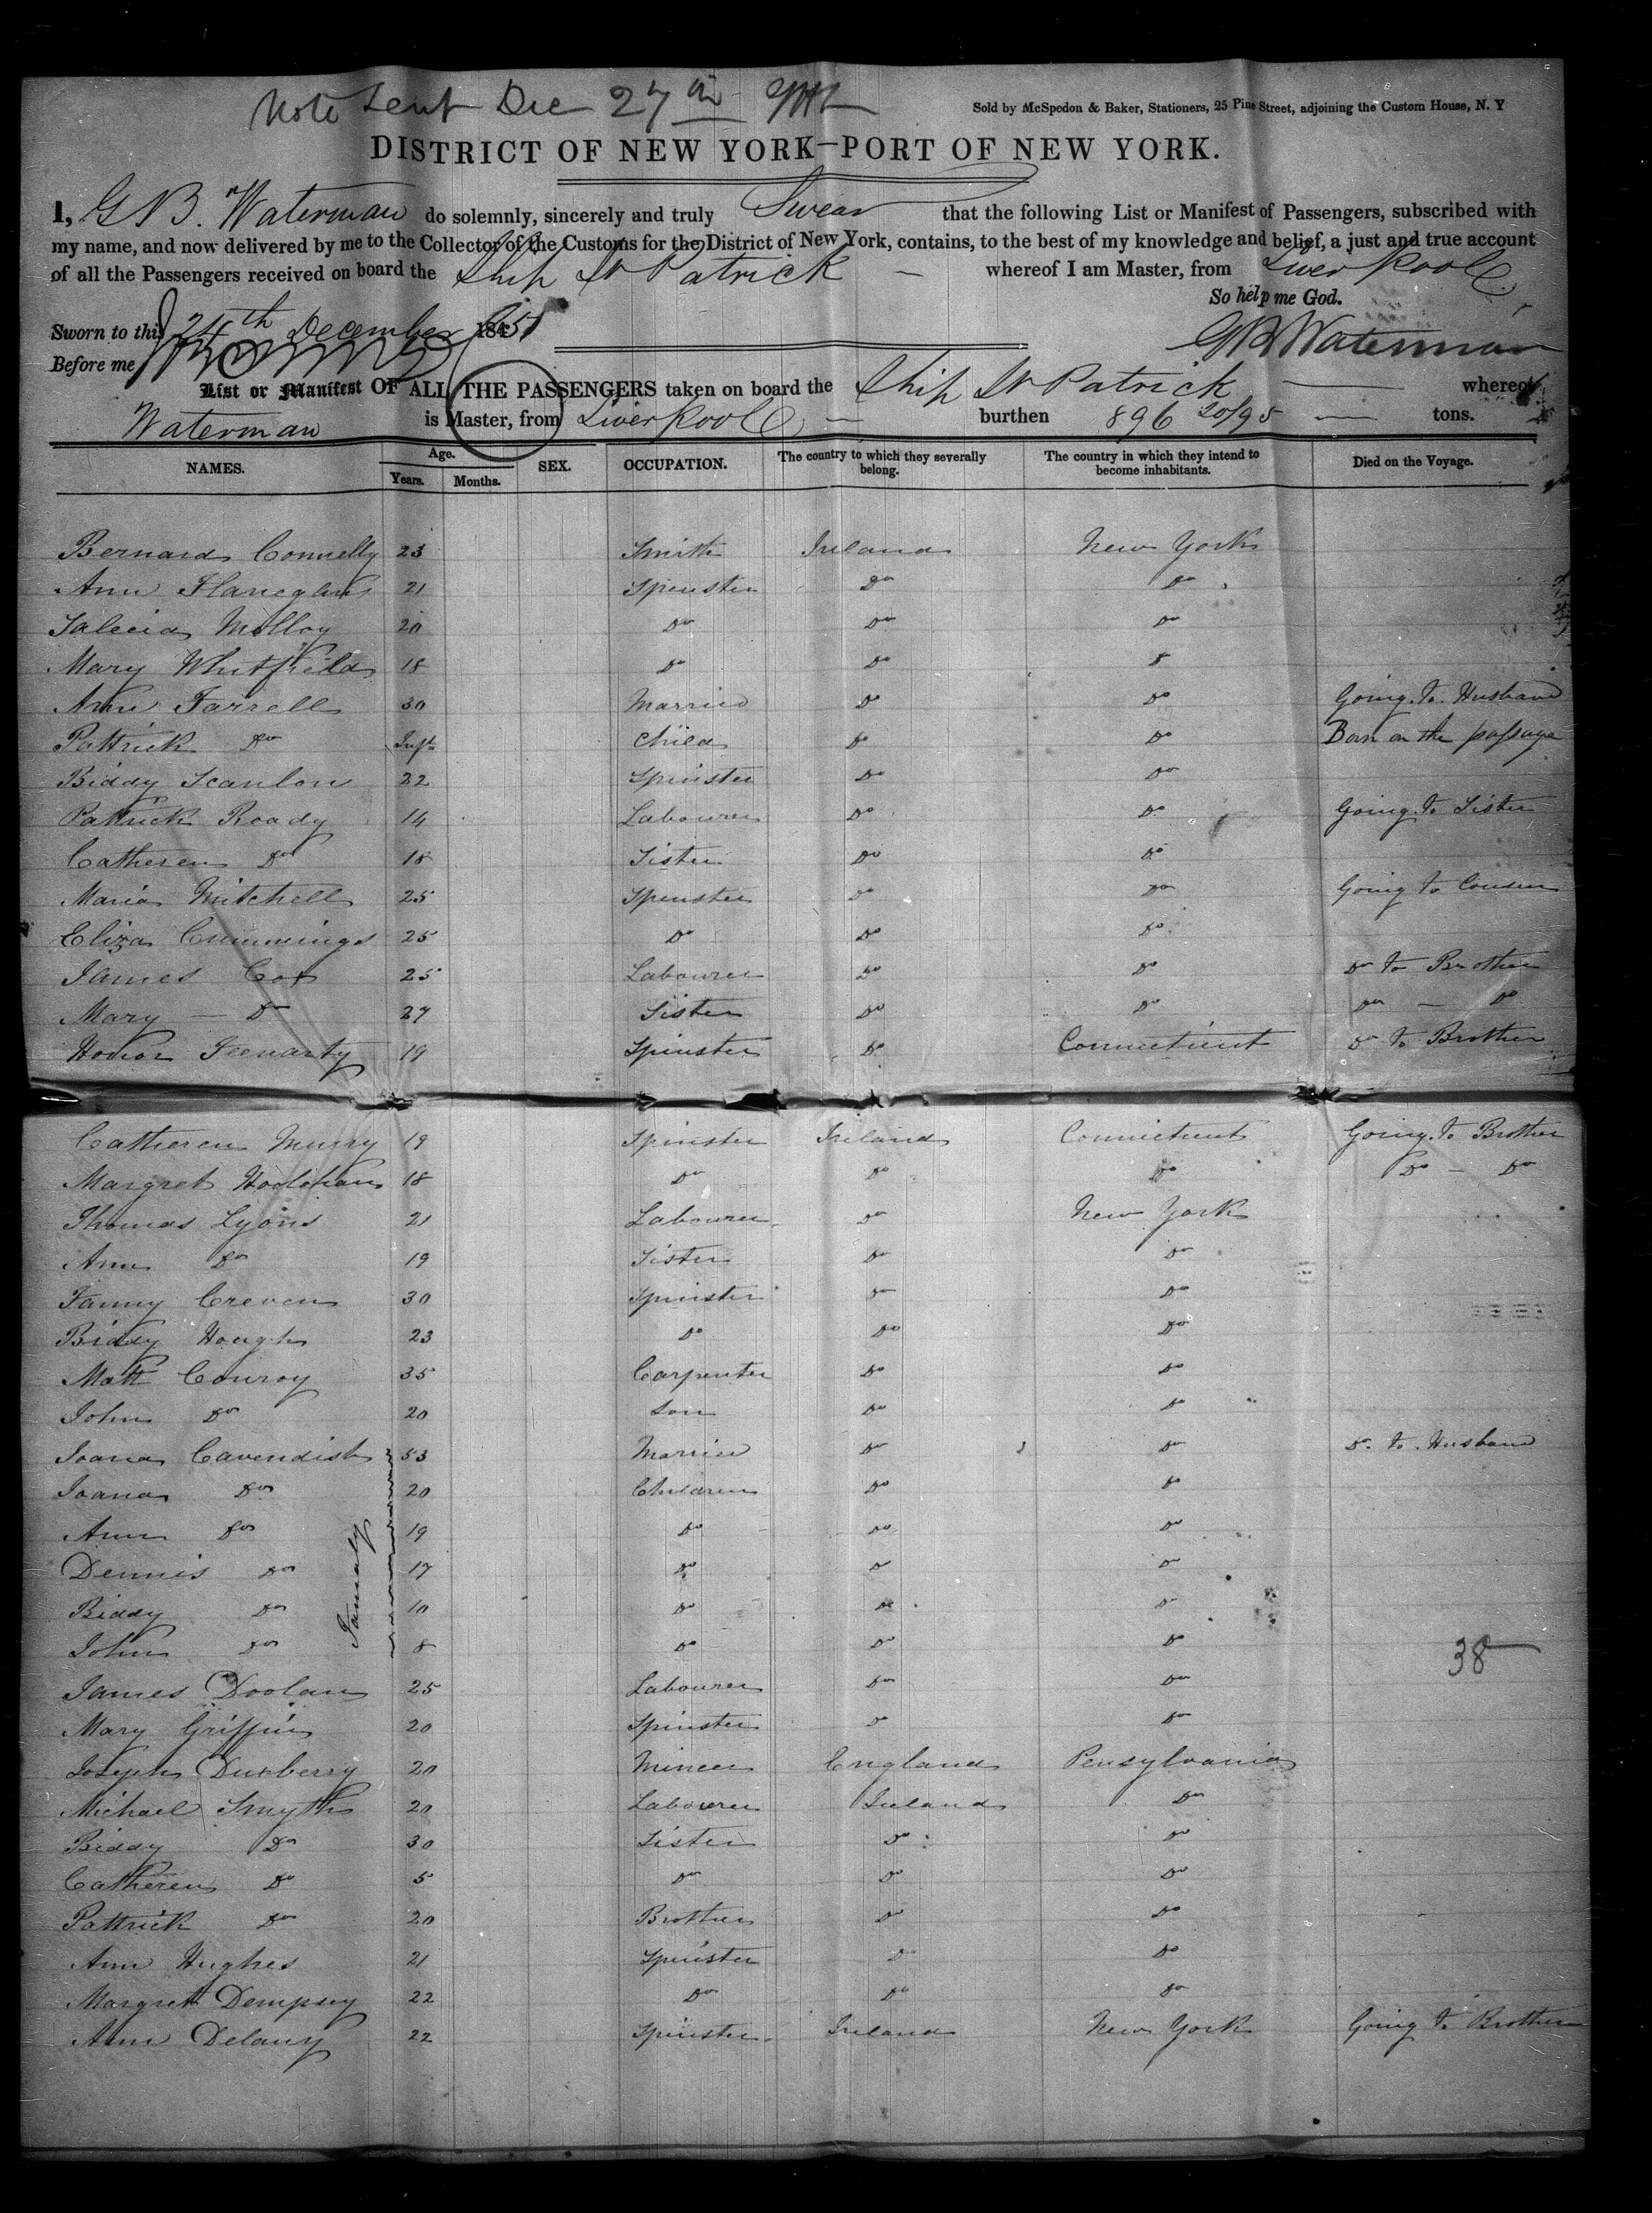 Note Sent Dec 27th
Sold by McSpedon & Baker, Stationers, 25 Pine Street, adjoining the Custom House, N. Y
DISTRICT OF NEW YORK—PORT OF NEW YORK.
I, G B. Waterman do solemnly, sincerely and truly Swear that the following List or Manifest of Passengers, subscribed with
my name, and now delivered by me to the Collector of the Customs for the District of New York, contains, to the best of my knowledge and belief, a just and true account
of all the Passengers received on board the Ship St Patrick — whereof I am Master, from Liverpool
So help me God.
Sworn to this December 1851
G B Waterman
Before me
List or Manifest OF ALL THE PASSENGERS taken on board the Ship St Patrick — whereof
Waterman is Master, from Liverpool — burthen 896 20/95 — tons.
NAMES. Age. Years. Months. SEX. OCCUPATION. The country to which they severally belong. The country in which they intend to become inhabitants. Died on the Voyage.
Bernard Connelly 23 Smith Ireland New York
Ann Flanegan 21 Spinster Do Do
Salecia Molloy 20 Do Do Do
Mary Whitfield 18 Do Do Do
Ann Farrell 30 Married Do Do Going to Husband
Pattrick Do Inft Child Do Do Born on the passage
Biddy Scanlon 22 Spinster Do Do
Pattrick Roady 14 Labourer Do Do Going to Sister
Catheren Do 18 Sister Do Do
Maria Mitchell 25 Spinster Do Do Going to Cousin
Eliza Cummings 25 Do Do Do
James Cox 25 Labourer Do Do Do to Brother
Mary — Do 27 Sister Do Do Do — Do
Honor Feenarty 19 Spinster Do Connecticut Do to Brother
Catheren Murry 19 Spinster Ireland Connecticut Going to Brother
Margret Hoolohan 18 Do Do Do Do — Do
Thomas Lyons 21 Labourer Do New York
Ann Do 19 Sister Do Do
Fanny Creven 30 Spinster Do Do
Biddy Hough 23 Do Do Do
Matt Conroy 35 Carpenter Do Do
John Do 20 Son Do Do
Joana Cavendish 53 Married Do Do Do to Husband
Joana Do 20 Children Do Do
Ann Do 19 Do Do Do
Dennis Do 17 Do Do Do
Biddy Do 10 Do Do Do
Family
John Do 8 Do Do Do
38
James Doolan 25 Labourer Do Do
Mary Griffin 20 Spinster Do Do
Joseph Duxberry 20 Mineer England Pensylvania
Michael Smyth 20 Labourer Ireland Do
Biddy Do 30 Sister Do Do
Catheren Do 5 Do Do Do
Pattrick Do 20 Brother Do Do
Ann Hughes 21 Spinster Do Do
Margret Dempsey 22 Do Do Do
Ann Delany 22 Spinster Ireland New York Going to Brother